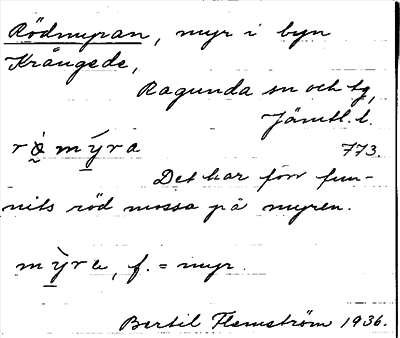 Rödmyran, myr i byn
Krångede,
Ragunda sn och tg,
Jämtl. l.
rö̀mýra 773.
Det har förr fun-
nits röd mossa på myren.
mỳre, f. = myr.
Bertil Flemström 1936.